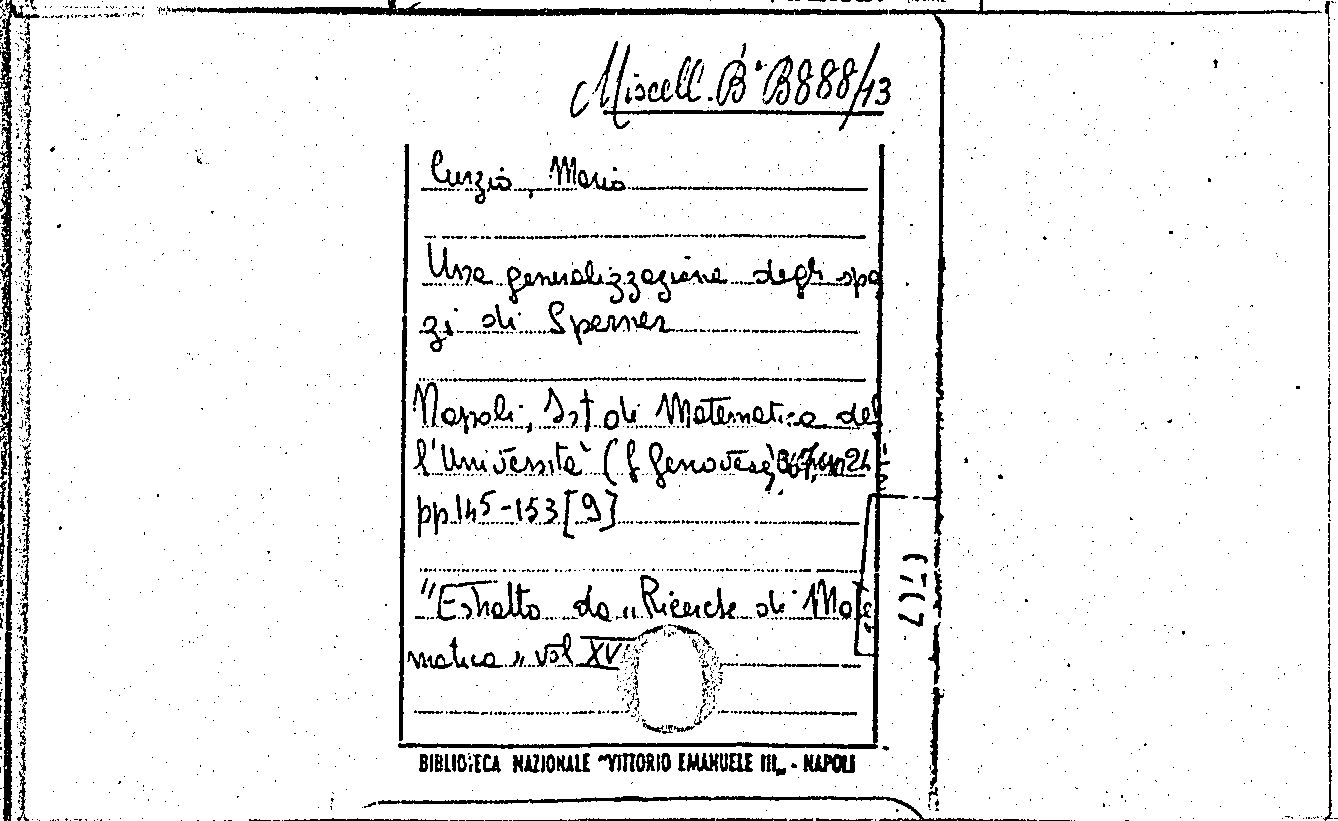 Miscell. B. B888/13
Curzio, Mario
Una generalizzazione degli spa
zi di Sperner
Napoli, Ist di Matematica del
l'Università (f Genovese)
pp 145-153 [9]
"Estratto da „Ricerche di Mate
matica" vol XV
BIBLIOTECA NAZIONALE "VITTORIO EMANUELE III„ - NAPOLI